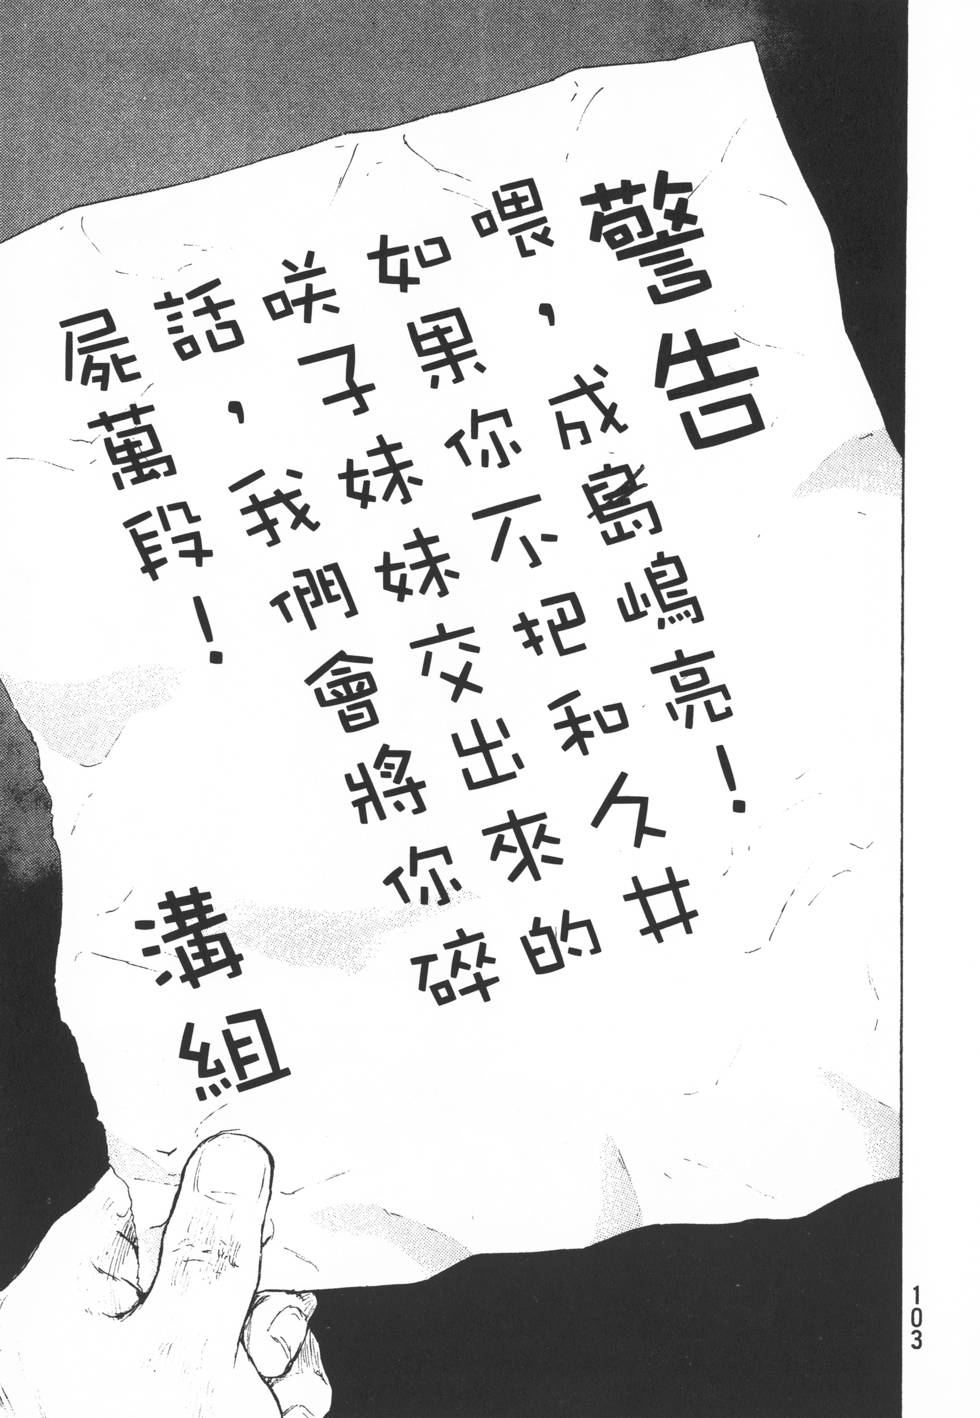 警告
喂，成島嶋亮！
如果你不把和久井
咲子妹妹交出來的
話，我們會將你碎
屍萬段！
溝組
103